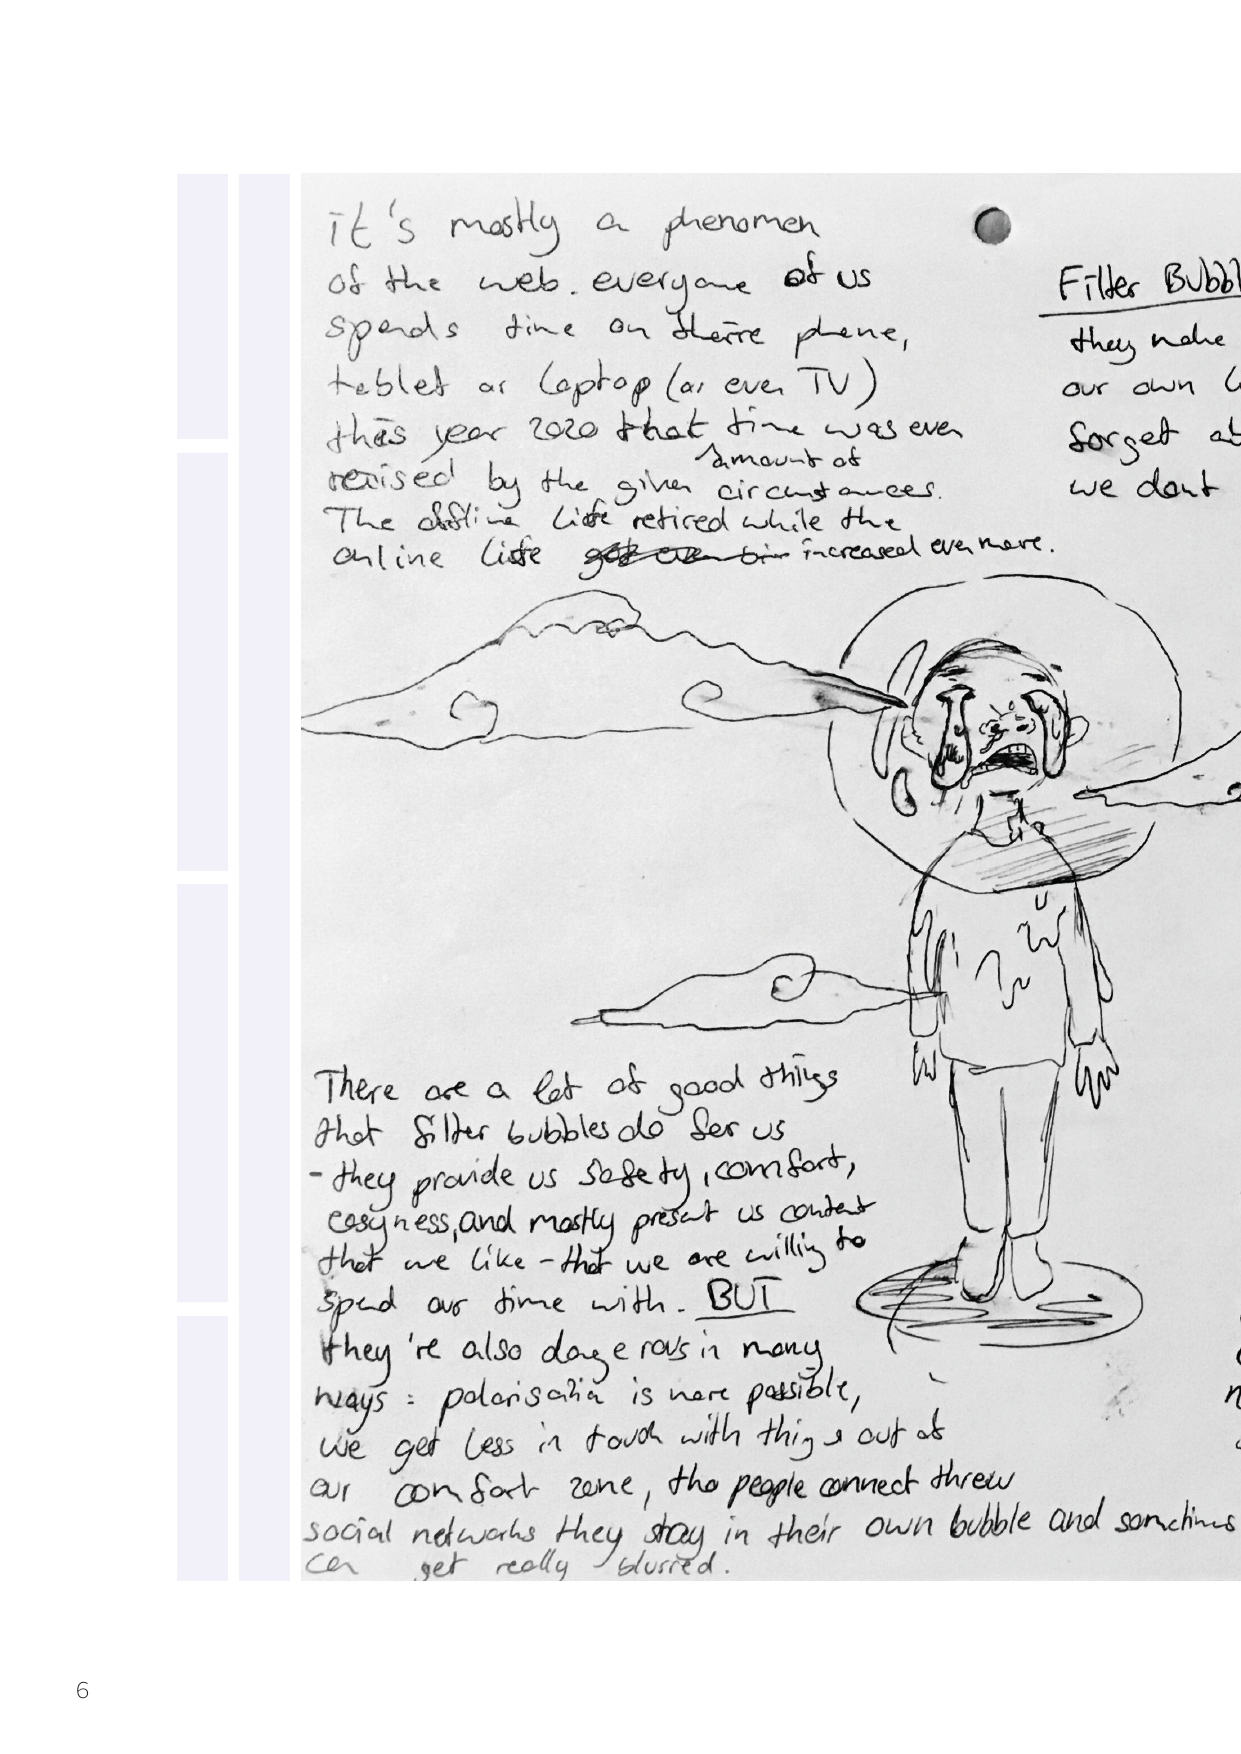 it's mostly a phenomen
of the web. everyone of us
spends time on theire phone,
tablet or laptop (or even TV)
this year 2020 that time was even
amount of
by the given circumstances.
The offline life retired while the
online life increased even more.
Filter Bubbl
they make
our own
forget
we dont
There are a lot of good things
that filter bubbles do for us
- they provide us safety, comfort,
easyness, and mostly present us content
that we like - that we are willig to
spend our time with. BUT
they're also dangerous in many
ways: polarisatin is more possible,
we get less in touch with things out of
our comfort zone, tho people connect threw
social networks they stay in their own bubble and sometimes
can get really blurred.
6